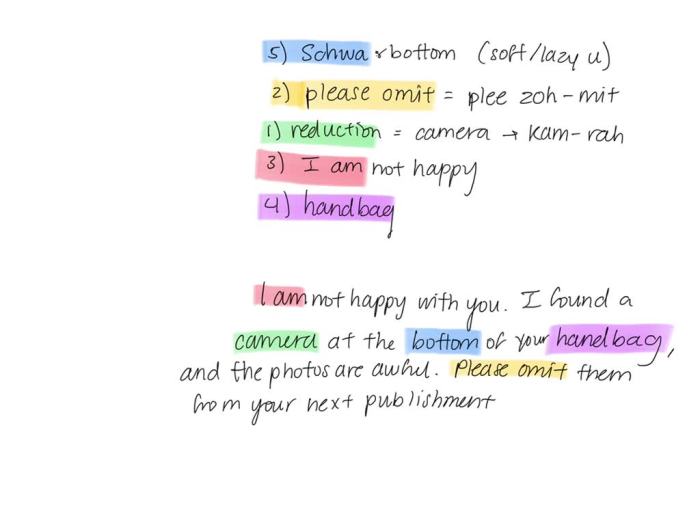 5) Schwa & bottom (soft/lazy u)
2) please omit = plee zoh-mit
1) reduction = camera → kam-rah
3) I am not happy
4) handbag
I am not happy with you. I found a
camera at the bottom of your handbag,
and the photos are awful. Please omit them
from your next publishment